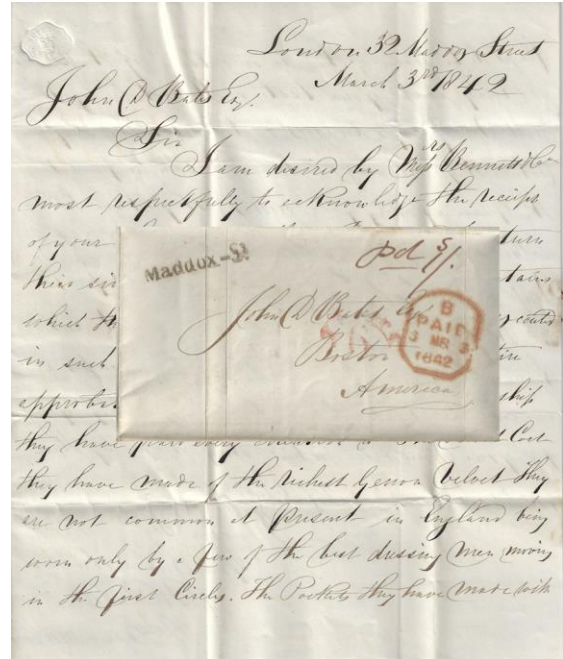 London 32 Maddox Street
March 3rd 1842
John D Bates Esq.
Sir
I am desired by Messrs Bennett & Co
most respectfully to acknowledge the receipt
of your
turn
their
which th
in such
approba
ship
they have
Coat
they have made of the richest Genoa Velvet they
are not common at present in England being
worn only by a few of the best dressing Men moving
in the first Circles. The Pockets they have made with
Maddox-St
pd 1/
John D Bates Esq
Boston
America
B
PAID
3 MR 3
1842